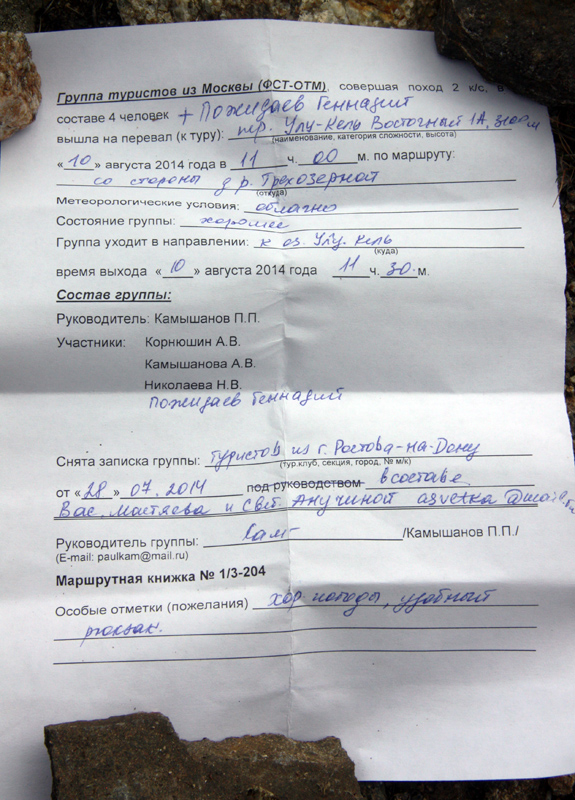 Группа туристов из Москвы (ФСТ-ОТМ), совершая поход 2 к/с, в
составе 4 человек + Пожидаев Геннадий
вышла на перевал (к туру): пер. Улу-Кель Восточный 1А, 3100 м
(наименование, категория сложности, высота)
«10» августа 2014 года в 11 ч. 00 м. по маршруту:
со стороны д.р. Трехозерной
(откуда)
Метеорологические условия: облачно
Состояние группы: хорошее
Группа уходит в направлении: к оз. Улу-Кель
(куда)
время выхода «10» августа 2014 года 11 ч. 30 м.
Состав группы:
Руководитель: Камышанов П.П.
Участники: Корнюшин А.В.
Камышанова А.В.
Николаева Н.В.
Пожидаев Геннадий
Снята записка группы: туристов из г. Ростова-на-Дону
(тур.клуб, секция, город, № м/к)
от «28» 07.2014 под руководством в составе
Вас. Мастяева и Свет. Анучиной asvetka@mail.ru
Руководитель группы: /Камышанов П.П./
(E-mail: paulkam@mail.ru)
Маршрутная книжка № 1/3-204
Особые отметки (пожелания) хор. погоды, удобный
рюкзак.